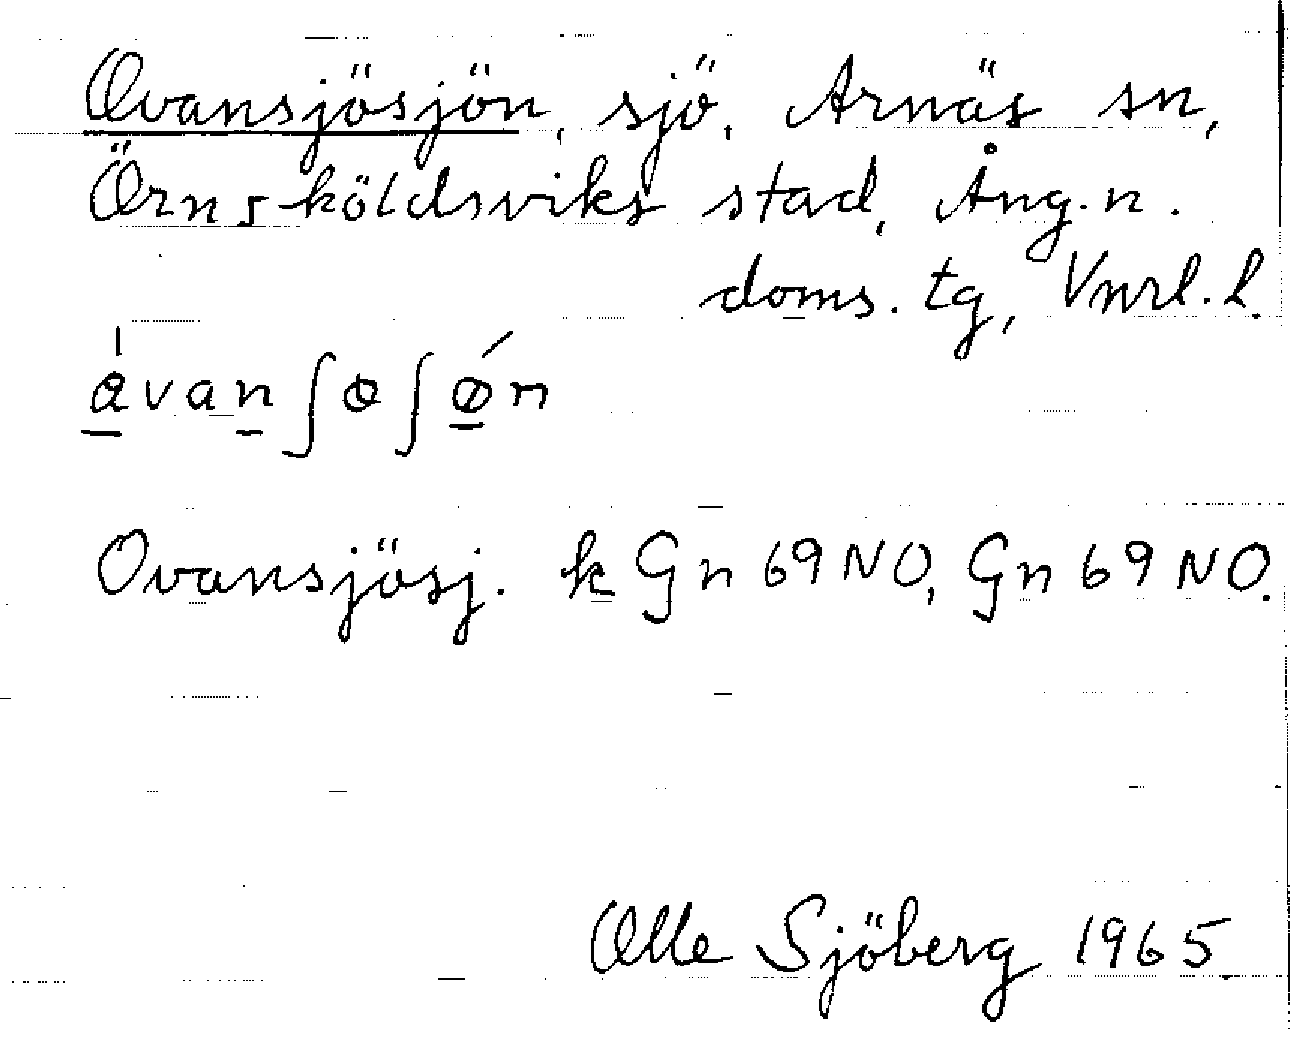 Ovansjösjön, sjö, Arnäs sn,
Örnsköldsviks stad, Ång. n.
doms. tg, Vnrl. l.
a̱̍van̠ʃɵʃǿ̱n
Ovansjösj. k Gn 69 NO, Gn 69 NO.
Olle Sjöberg 1965